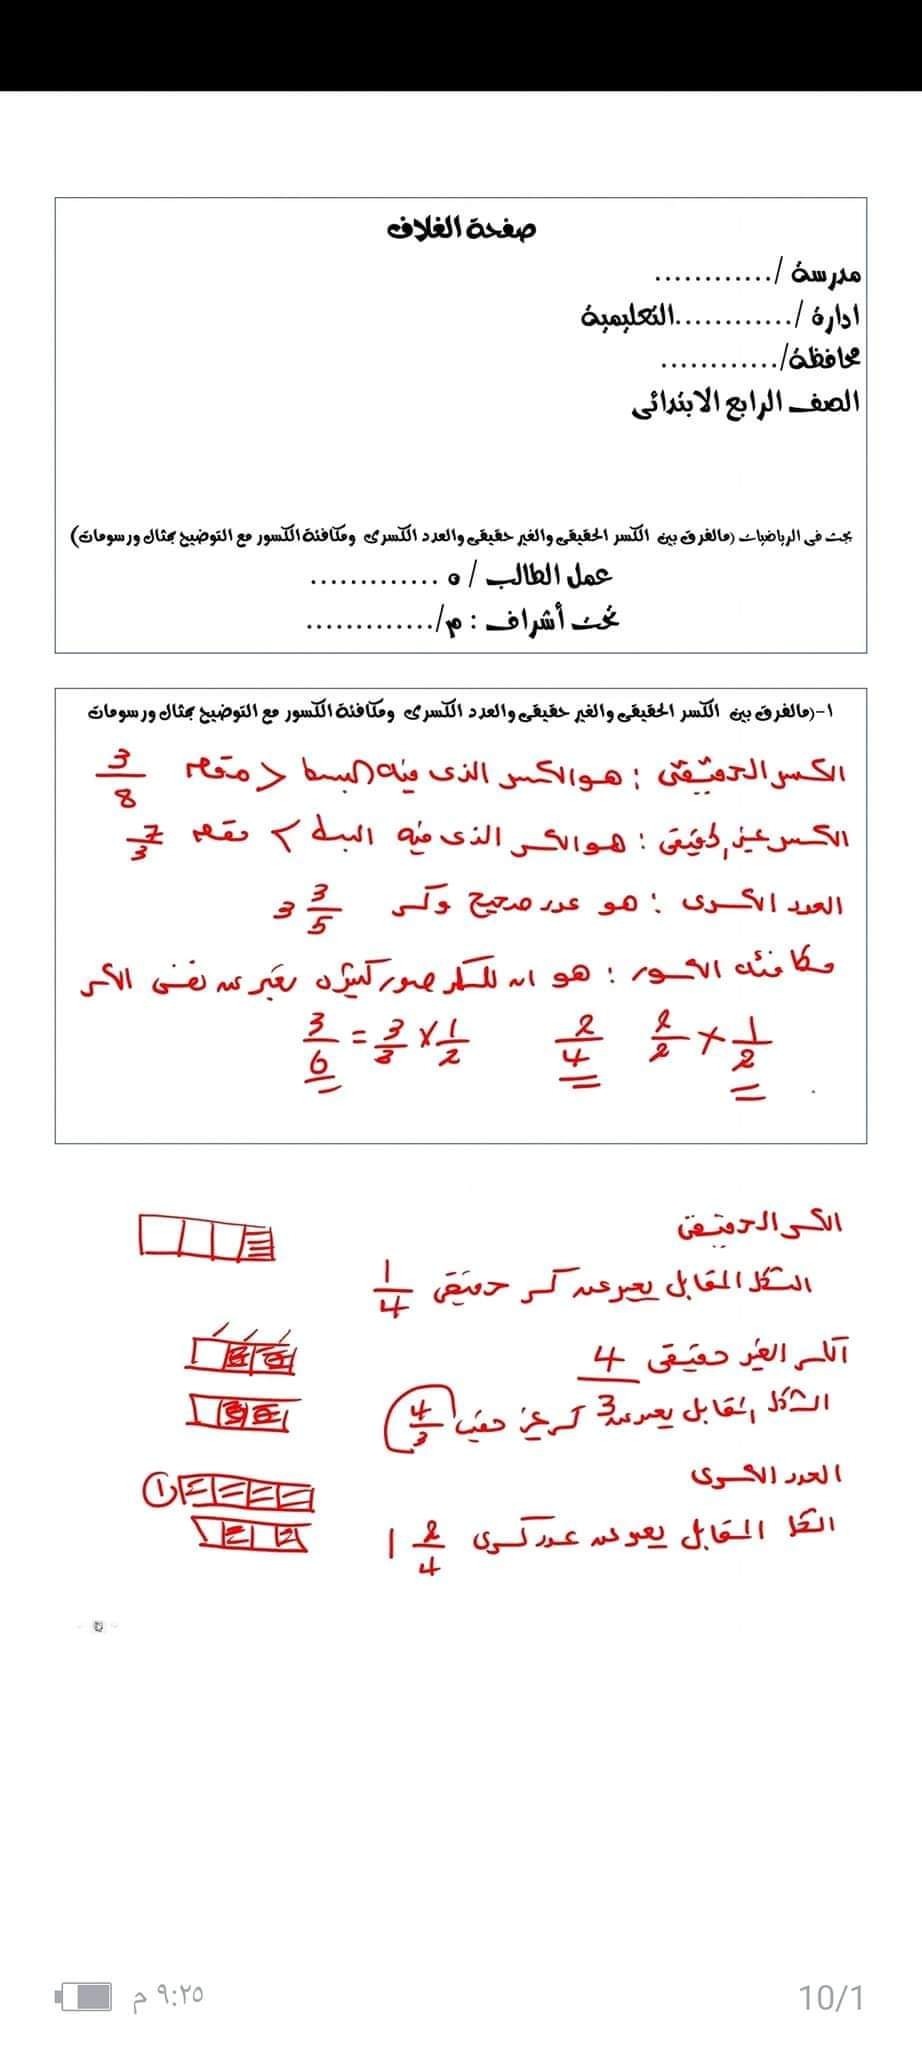 صفحة الغلاف
مدرسة /............
ادارة /............التعليمية
محافظة/............
الصف الرابع الابتدائى
بحث فى الرياضيات (مالفرق بين الكسر الحقيقى والغير حقيقى والعدد الكسرى ومكافئة الكسور مع التوضيح بمثال ورسومات)
عمل الطالب / ه .............
تحت أشراف : م/.............
١-(مالفرق بين الكسر الحقيقى والغير حقيقى والعدد الكسرى ومكافئة الكسور مع التوضيح بمثال ورسومات
الكسر الحقيقى : هو الكسر الذى فيه البسط < مقام 3/8
الكسر غير حقيقى : هو الكسر الذى فيه البسط > مقام 7/3
العدد الكسرى : هو عدد صحيح وكسر 3 3/5
مكافئه الكسور : هو ان للكسر صور كثيره يعبر عن نفس الكسر
1/2 × 2/2 2/4 1/2 × 3/3 = 3/6
الكسر الحقيقى
الشكل المقابل يعبر عن كسر حقيقى 1/4
الكسر الغير حقيقى 4/3
الشكل المقابل يعبر عن كسر غير حقيقى 4/3
العدد الكسرى
①
الشكل المقابل يعبر عن عدد كسرى 1 2/4
٩:٢٥ م
10/1